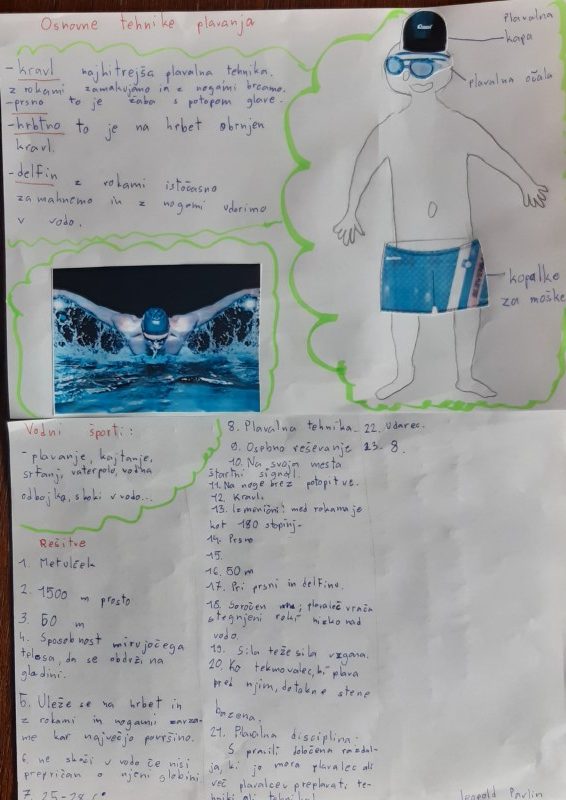 Osnovne tehnike plavanja
- kravl najhitrejša plavalna tehnika.
z rokami zamahujemo in z nogami brcamo.
- prsno to je žaba s potopom glave.
- hrbtno to je na hrbet obrnjen
kravl.
- delfin z rokami istočasno
zamahnemo in z nogami udarimo
v vodo.
Plavalna
kapa
plavalna očala
kopalke
za moške
Vodni športi:
- plavanje, kajtanje,
srfanj, vaterpolo, vodna
odbojka, skoki v vodo...
Rešitve
1. Metulček
2. 1500 m prosto
3. 50 m
4. Sposobnost mirujočega
telesa, da se obdrži na
gladini.
5. Uleže se na hrbet in
z rokami in nogami zavza-
me kar največjo površino.
6. ne skoči v vodo če nisi
prepričan o njeni globini
7. 25-28 C°
8. Plavalna tehnika.
9. Osebno reševanje
10. Na svoja mesta
štartni signal.
11. Na noge brez potopitve.
12. Kravl.
13. Izmenični med rokama je
kot 180 stopinj.
14. Prsno
15.
16. 50 m
17. Pri prsni in delfinu.
18. Soročen plavalec vrača
stegnjeni roki nizko nad
vodo.
19. Sila teže sila vzgona.
20. Ko tekmovalec, ki plava
pred njim, dotakne stene
bazena.
21. Plavalna disciplina.
S pravili določena razdal-
ja, ki jo mora plavalec ali
več plavalcev preplavati
22. Udarec.
23. 8.
Leopold Pavlin